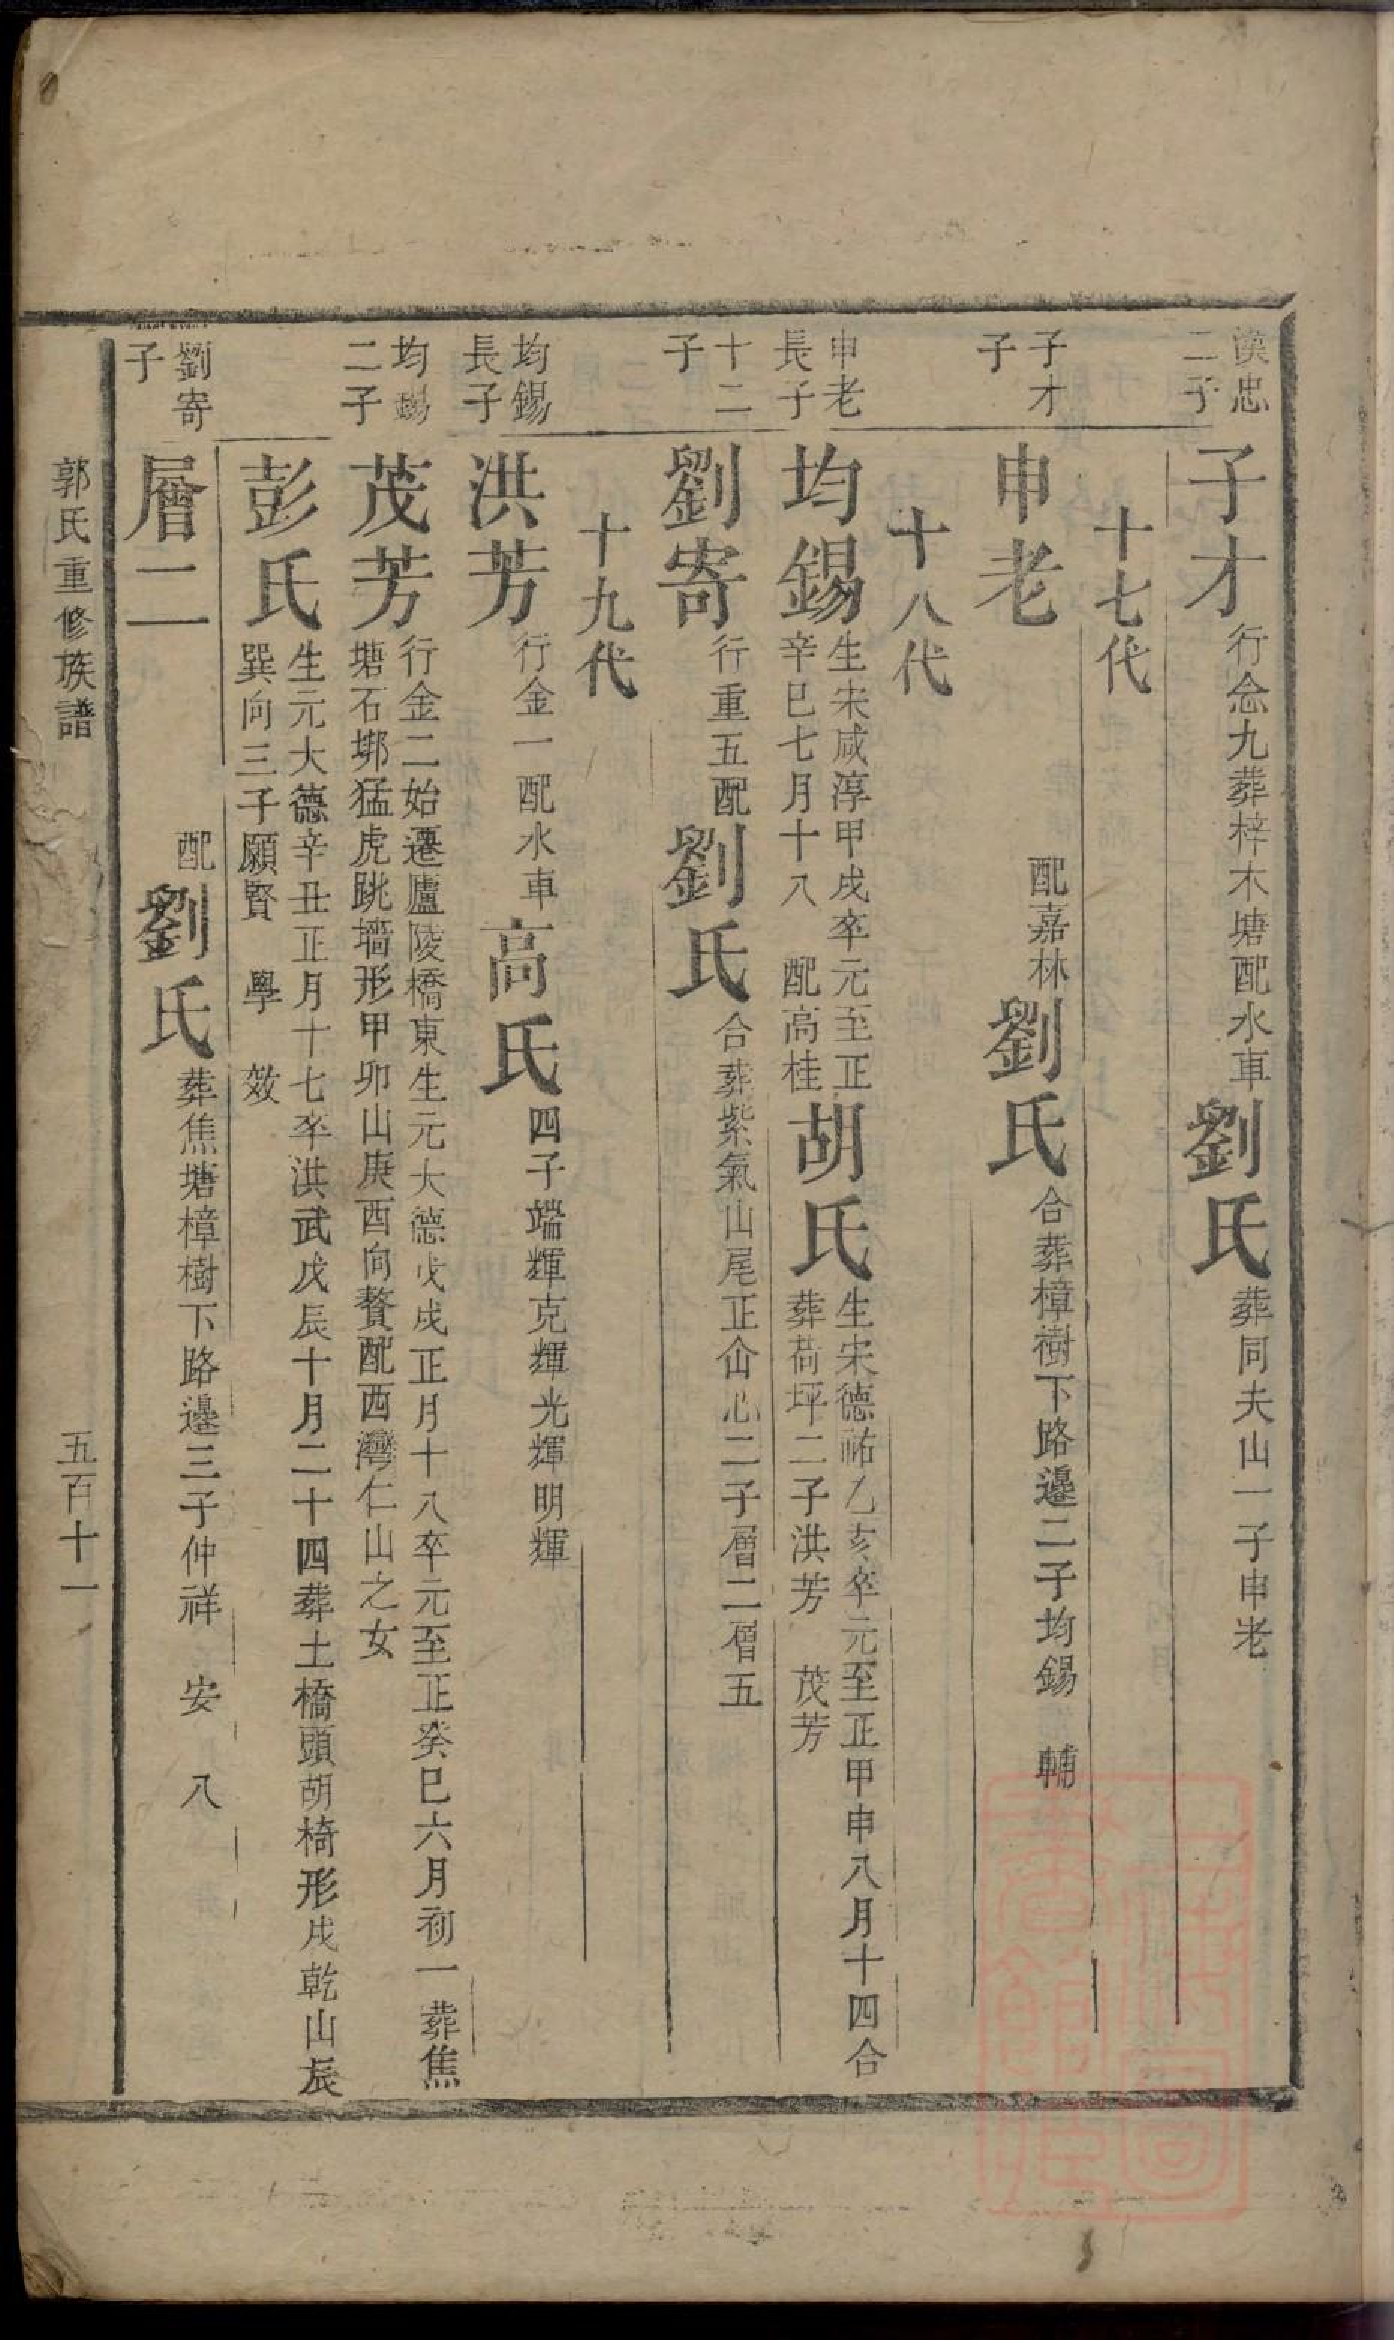 漢忠
二子
子才
行念九葬梓木塘配水車
劉氏
葬同夫山一子申老
十七代
子才
子
申老
配嘉林
劉氏
合葬樟樹下路邊二子均錫 輔
十八代
申老
長子
均錫
生宋咸淳甲戌卒元至正
辛巳七月十八 配高桂
胡氏
生宋德祐乙亥卒元至正甲申八月十四合
葬荷坪二子洪芳 茂芳
十二
子
劉寄
行重五配
劉氏
合葬紫氣山尾正仚心二子層二層五
十九代
均錫
長子
洪芳
行金一配水車
高氏
四子端輝克輝光輝明輝
均錫
二子
茂芳
行金二始遷廬陵橋東生元大德戊戌正月十八卒元至正癸巳六月初一葬焦
塘石塀猛虎跳墻形甲卯山庚酉向贅配西灣仁山之女
彭氏
生元大德辛丑正月十七卒洪武戊辰十月二十四葬土橋頭胡椅形戌乾山辰
巽向三子願賢 學 效
劉寄
子
層二
配
劉氏
葬焦塘樟樹下路邊三子仲祥 安 八
郭氏重修族譜
五百十一